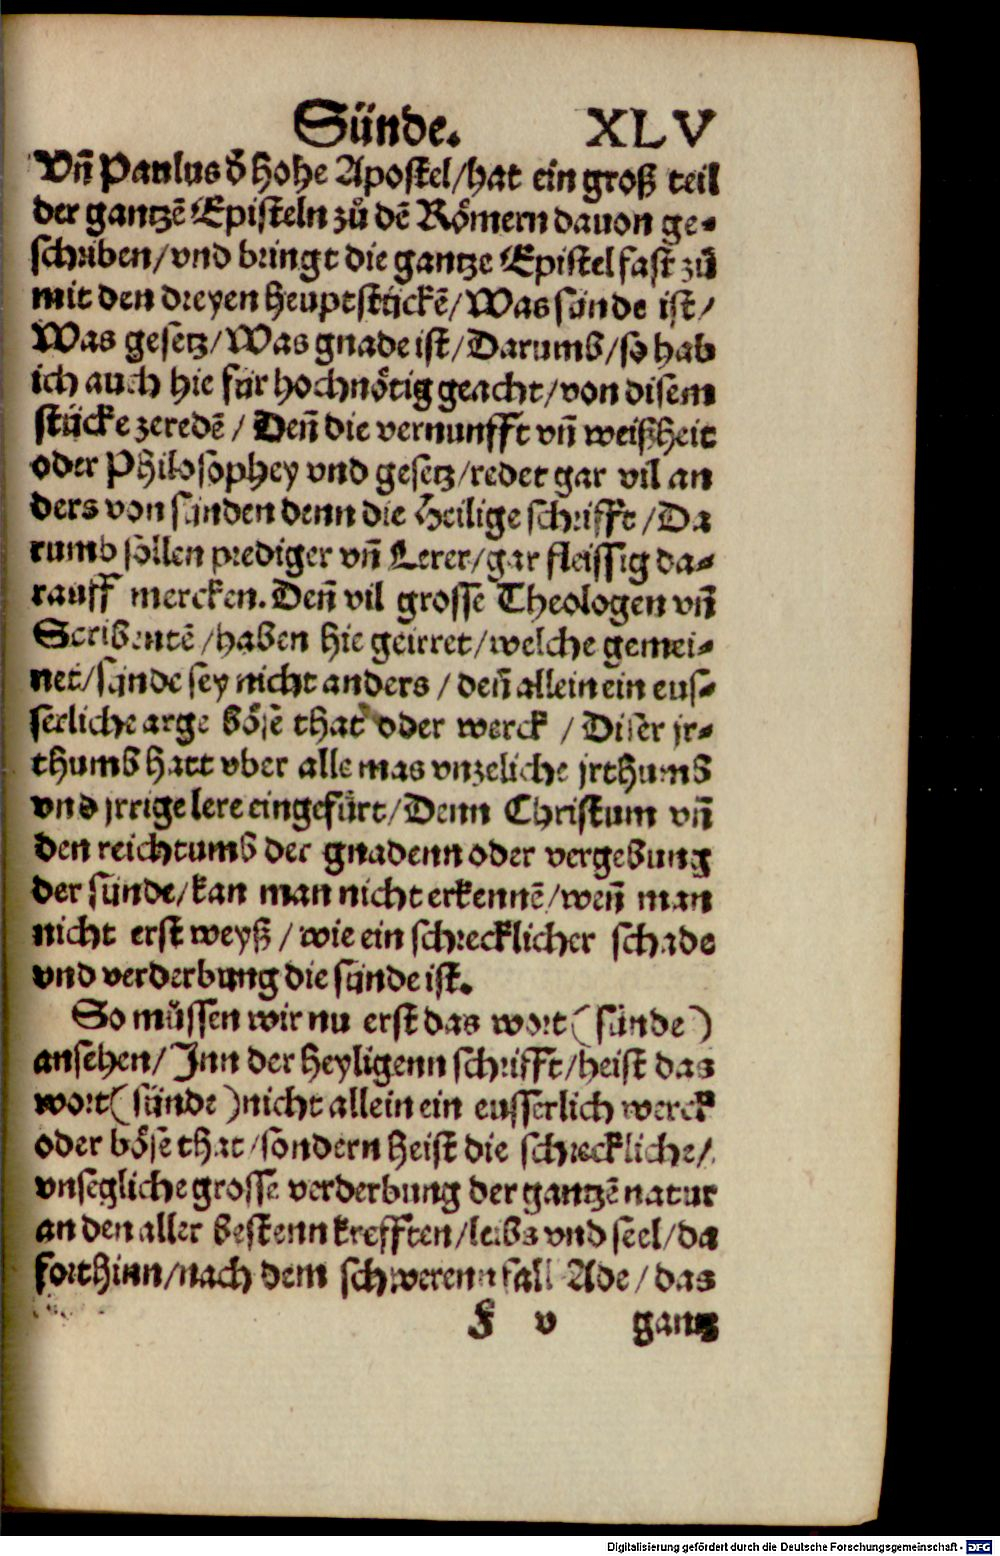 Sünde. XLV
Vñ Paulus ð hohe Apostel/hat ein groß teil
der gantzẽ Episteln zů dẽ Römern dauon ge⸗
schriben/vnd bringt die gantze Epistel fast zů
mit den dreyen heuptstückẽ/Was sünde ist/
Was gesetz/Was gnade ist/Darumb/so hab
ich auch hie für hochnötig geacht/von disem
stücke zeredẽ/Deñ die vernunfft vñ weißheit
oder Philosophey vnd gesetz/redet gar vil an
ders von sünden denn die Heilige schrifft/Da
rumb söllen prediger vñ Lerer/gar fleissig da⸗
rauff mercken. Deñ vil grosse Theologen vñ
Scribentẽ/haben hie geirret/welche gemei⸗
net/sünde sey nicht anders/deñ allein ein eus⸗
serliche arge böse that oder werck/Diser jr⸗
thumb hatt vber alle mas vnzeliche jrthumb
vnd jrrige lere eingefürt/Denn Christum vñ
den reichtumb der gnadenn oder vergebung
der sünde/kan man nicht erkennẽ/weñ man
nicht erst weyß/wie ein schrecklicher schade
vnd verderbung die sünde ist.
So müssen wir nu erst das wort (sünde)
ansehen/Inn der Heyligenn schrifft/heist das
wort (sünde) nicht allein ein eusserlich werck
oder böse that/sondern heist die schreckliche/
vnsegliche grosse verderbung der gantzẽ natur
an den aller bestenn krefften/leibs vnd seel/da
forthinn/nach dem schwerenn fall Ade/das
F v gantz
Digitalisierung gefördert durch die Deutsche Forschungsgemeinschaft - DFG